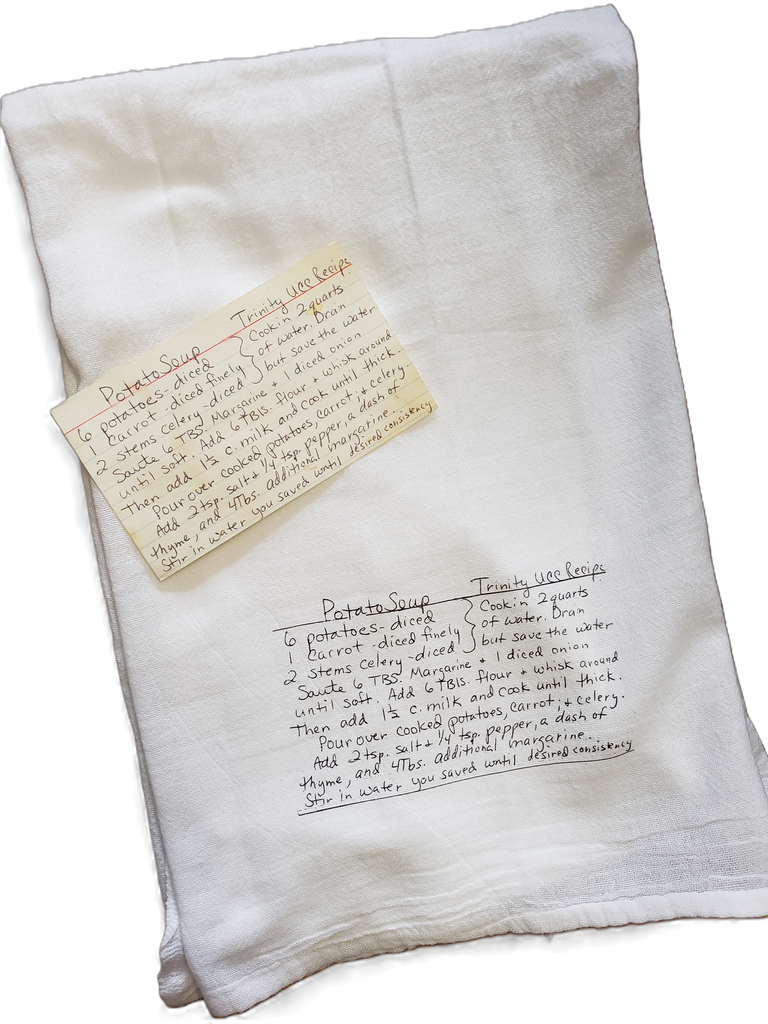 Potato Soup Trinity UCC Recipe
6 potatoes - diced
1 Carrot - diced finely
2 Stems Celery - diced
} Cook in 2 quarts
of water. Drain
but save the water
Saute 6 TBS. Margarine + 1 diced onion
until soft. Add 6 TBls. flour + whisk around
Then add 1½ c. milk and cook until thick.
Pour over cooked potatoes, carrot, + celery.
Add 2 tsp. salt + ¼ tsp. pepper, a dash of
thyme, and 4 Tbs. additional margarine...
Stir in water you saved until desired consistency
Potato Soup Trinity UCC Recipe
6 potatoes - diced
1 Carrot - diced finely
2 Stems Celery - diced
} Cook in 2 quarts
of water. Drain
but save the water
Saute 6 TBS. Margarine + 1 diced onion
until soft. Add 6 TBls. flour + whisk around
Then add 1½ c. milk and cook until thick.
Pour over cooked potatoes, carrot, + celery.
Add 2 tsp. salt + ¼ tsp. pepper, a dash of
thyme, and 4 Tbs. additional margarine...
Stir in water you saved until desired consistency